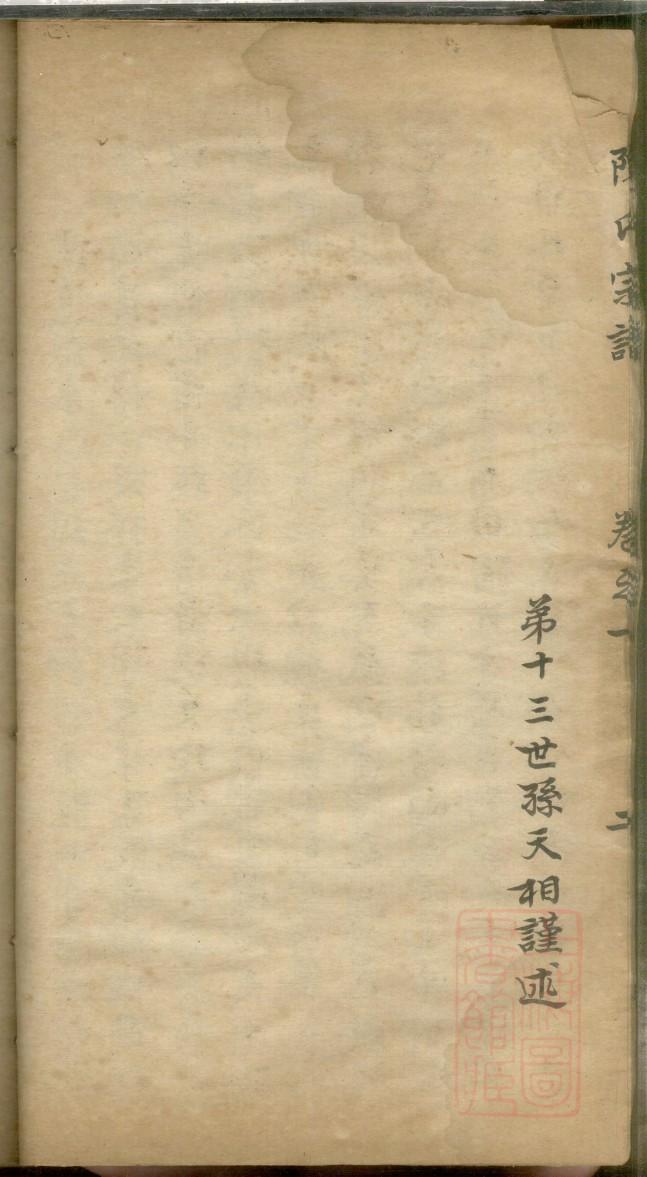 陳氏宗譜 卷之一 二
第十三世孫天相謹述